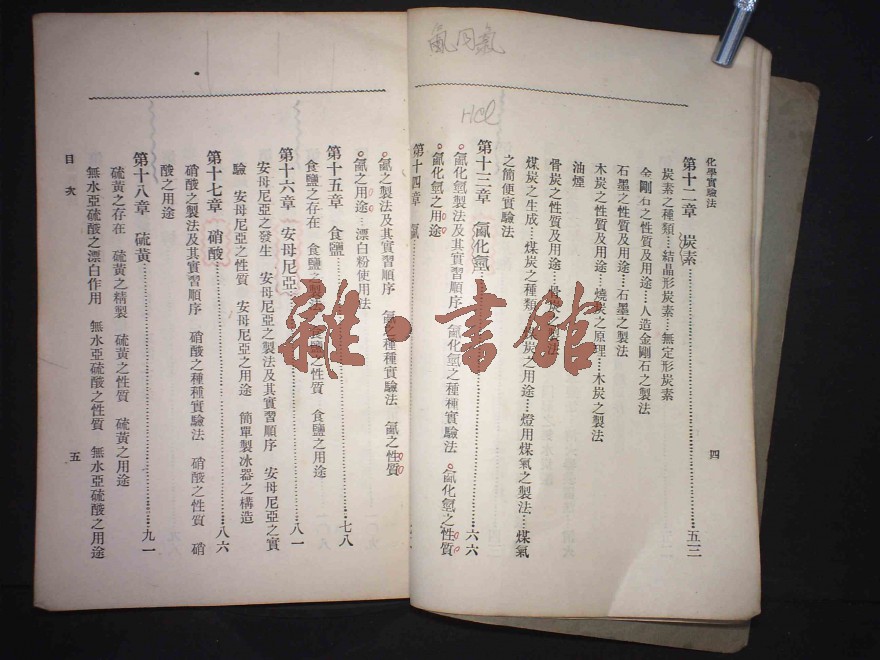 化學實驗法
四
第十二章 炭素……五三
炭素之種類…結晶形炭素…無定形炭素
金剛石之性質及用途…人造金剛石之製法
石墨之性質及用途…石墨之製法
木炭之性質及用途…燒炭之原理…木炭之製法
油煙
骨炭之性質及用途…骨炭之製法
煤炭之生成…煤炭之種類…煤炭之用途…燈用煤氣之製法…煤氣
之簡便實驗法
第十三章 氯化氫……六六
氯化氫製法及其實習順序 氯化氫之種種實驗法 氯化氫之性質
氯化氫之用途
HCl
第十四章 氯
氯之製法及其實習順序 氯之種種實驗法 氯之性質
氯之用途…漂白粉使用法
第十五章 食鹽……七八
食鹽之存在 食鹽之製法 食鹽之性質 食鹽之用途
第十六章 安母尼亞……八一
安母尼亞之發生 安母尼亞之製法及其實習順序 安母尼亞之實
驗 安母尼亞之性質 安母尼亞之用途 簡單製冰器之構造
第十七章 硝酸……八六
硝酸之製法及其實習順序 硝酸之種種實驗法 硝酸之性質 硝
酸之用途
第十八章 硫黃……九一
硫黃之存在 硫黃之精製 硫黃之性質 硫黃之用途
無水亞硫酸之漂白作用 無水亞硫酸之性質 無水亞硫酸之用途
目次
五
雜·書館